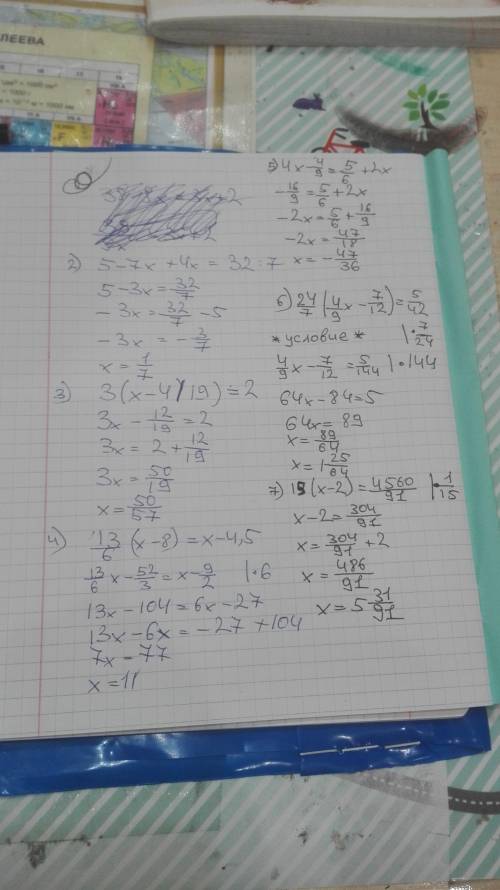 ЛЕЕВА
2) 5-7x+4x = 32:7
5-3x = 32/7
-3x = 32/7 - 5
-3x = -3/7
x = 1/7
3) 3(x-4/19) = 2
3x - 12/19 = 2
3x = 2 + 12/19
3x = 50/19
x = 50/57
4) 13/6 (x-8) = x-4,5
13/6 x - 52/3 = x - 9/2 |·6
13x - 104 = 6x - 27
13x - 6x = -27 + 104
7x = 77
x = 11
5) 4x · 4/9 = 5/6 + 2x
-16/9 = 5/6 + 2x
-2x = 5/6 + 16/9
-2x = 47/18
x = -47/36
6) 24/7 (4/9 x - 7/12) = 5/42
*условие* |·7/24
4/9 x - 7/12 = 5/144 |·144
64x - 84 = 5
64x = 89
x = 89/64
x = 1 25/64
7) 15(x-2) = 4560/91 |·1/15
x-2 = 304/91
x = 304/91 + 2
x = 486/91
x = 5 31/91